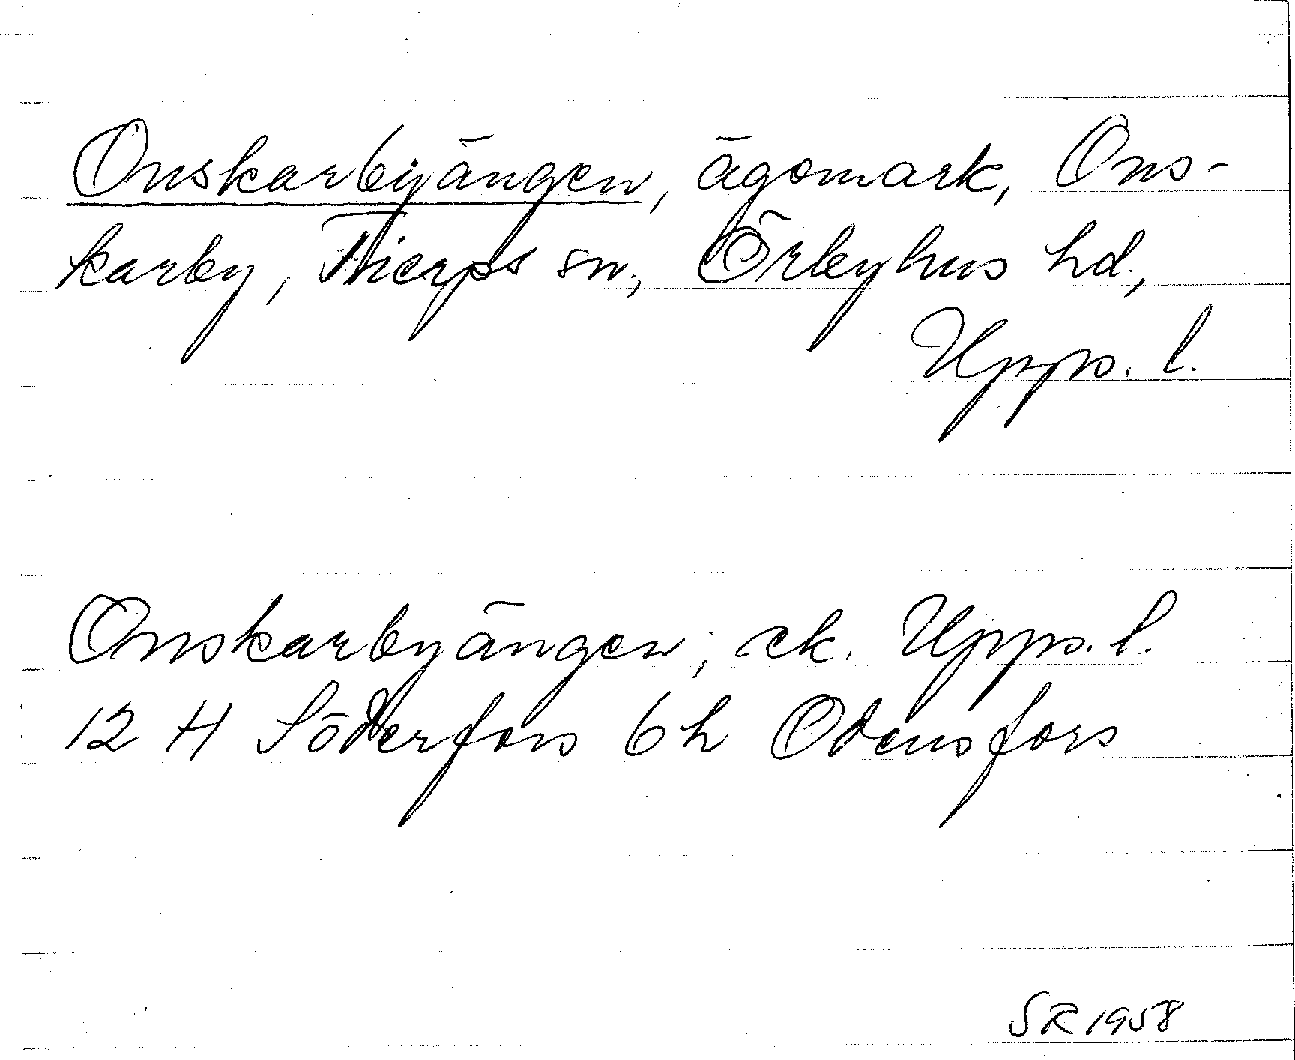 Onskarbyängen, ägomark, Ons-
karby, Tierps sn, Örbyhus hd,
Upps. l.
Onskarbyängen, ek. Upps. l.
12 H Söderfors 6h Odensfors
SR 1958